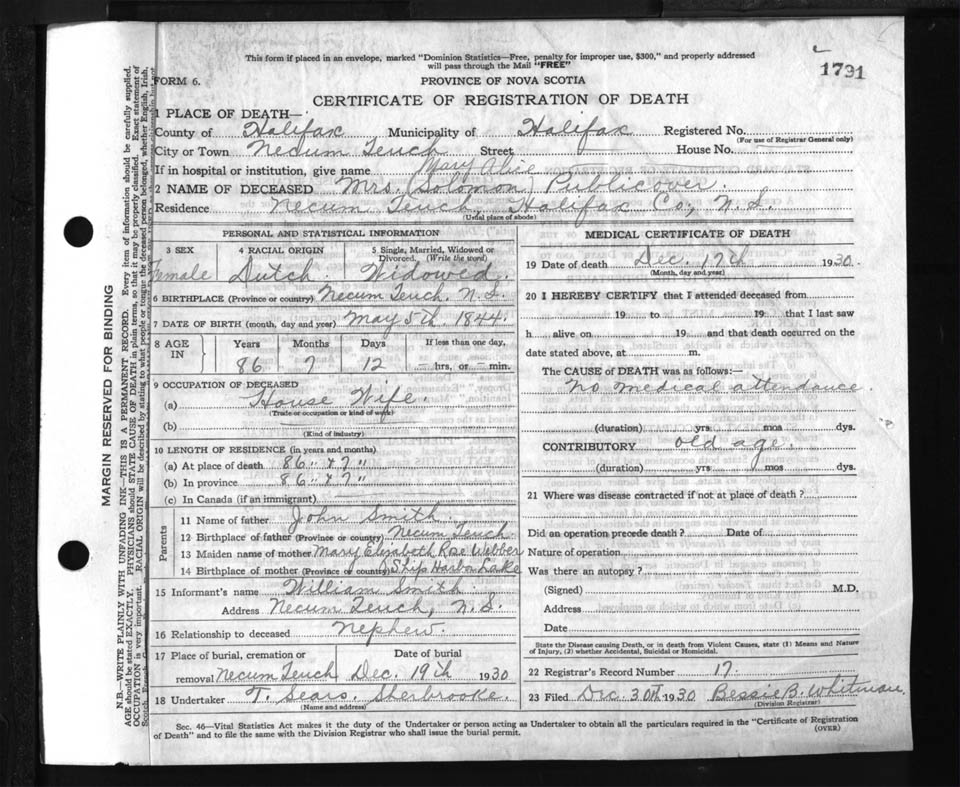 This form if placed in an envelope, marked "Dominion Statistics—Free, penalty for improper use, $300," and properly addressed
will pass through the Mail "FREE"
1791
FORM 6.
PROVINCE OF NOVA SCOTIA
CERTIFICATE OF REGISTRATION OF DEATH
1 PLACE OF DEATH—
County of Halifax Municipality of Halifax Registered No.
(For use of Registrar General only)
City or Town Necum Teuch Street House No.
If in hospital or institution, give name
Mary Alice
2 NAME OF DECEASED Mrs. (Solomon) Publicover.
Residence Necum Teuch, Halifax Co., N.S.
(Usual place of abode)
PERSONAL AND STATISTICAL INFORMATION
3 SEX 4 RACIAL ORIGIN 5 Single, Married, Widowed or
Divorced. (Write the word)
Female Dutch. Widowed.
6 BIRTHPLACE (Province or country) Necum Teuch. N.S.
7 DATE OF BIRTH (month, day and year) May 5th. 1844.
8 AGE IN Years Months Days If less than one day,
86 7 12 hrs. or min.
9 OCCUPATION OF DECEASED
(a) House Wife.
(Trade or occupation or kind of work)
(b)
(Kind of industry)
10 LENGTH OF RESIDENCE (in years and months)
(a) At place of death 86" & 7"
(b) In province 86" & 7"
(c) In Canada (if an immigrant)
Parents
11 Name of father John Smith.
12 Birthplace of father (Province or country) Necum Teuch.
13 Maiden name of mother Mary Elizabeth Rose Webber
14 Birthplace of mother (Province or country) Ship Harbor Lake
15 Informant's name William Smith
Address Necum Teuch, N.S.
16 Relationship to deceased Nephew.
17 Place of burial, cremation or Date of burial
removal Necum Teuch Dec. 19th 1930
18 Undertaker T. Sears. Sherbrooke.
(Name and address)
MEDICAL CERTIFICATE OF DEATH
19 Date of death Dec. 17th 1930.
(Month, day and year)
20 I HEREBY CERTIFY that I attended deceased from
19 to 19 that I last saw
h alive on 19 and that death occurred on the
date stated above, at m.
The CAUSE of DEATH was as follows:—
No medical attendance.
(duration) yrs. mos dys.
CONTRIBUTORY old age.
(duration) yrs mos dys.
21 Where was disease contracted if not at place of death?
Did an operation precede death? Date of
Nature of operation
Was there an autopsy?
(Signed) M.D.
Address
Date
State the Disease causing Death, or in death from Violent Causes, state (1) Means and Nature
of Injury, (2) whether Accidental, Suicidal or Homicidal.
22 Registrar's Record Number 17.
23 Filed Dec. 30th 1930 Bessie B. Whitman.
(Division Registrar)
Sec. 46—Vital Statistics Act makes it the duty of the Undertaker or person acting as Undertaker to obtain all the particulars required in the "Certificate of Registration
of Death" and to file the same with the Division Registrar who shall issue the burial permit.
(OVER)
MARGIN RESERVED FOR BINDING
N.B.—WRITE PLAINLY WITH UNFADING INK—THIS IS A PERMANENT RECORD. Every item of information should be carefully supplied.
AGE should be stated EXACTLY. PHYSICIANS should STATE CAUSE OF DEATH in plain terms, so that it may be properly classified. Exact statement of
OCCUPATION is very important. RACIAL ORIGIN will be described by stating to what people or tongue the deceased person belonged, whether English, Irish,